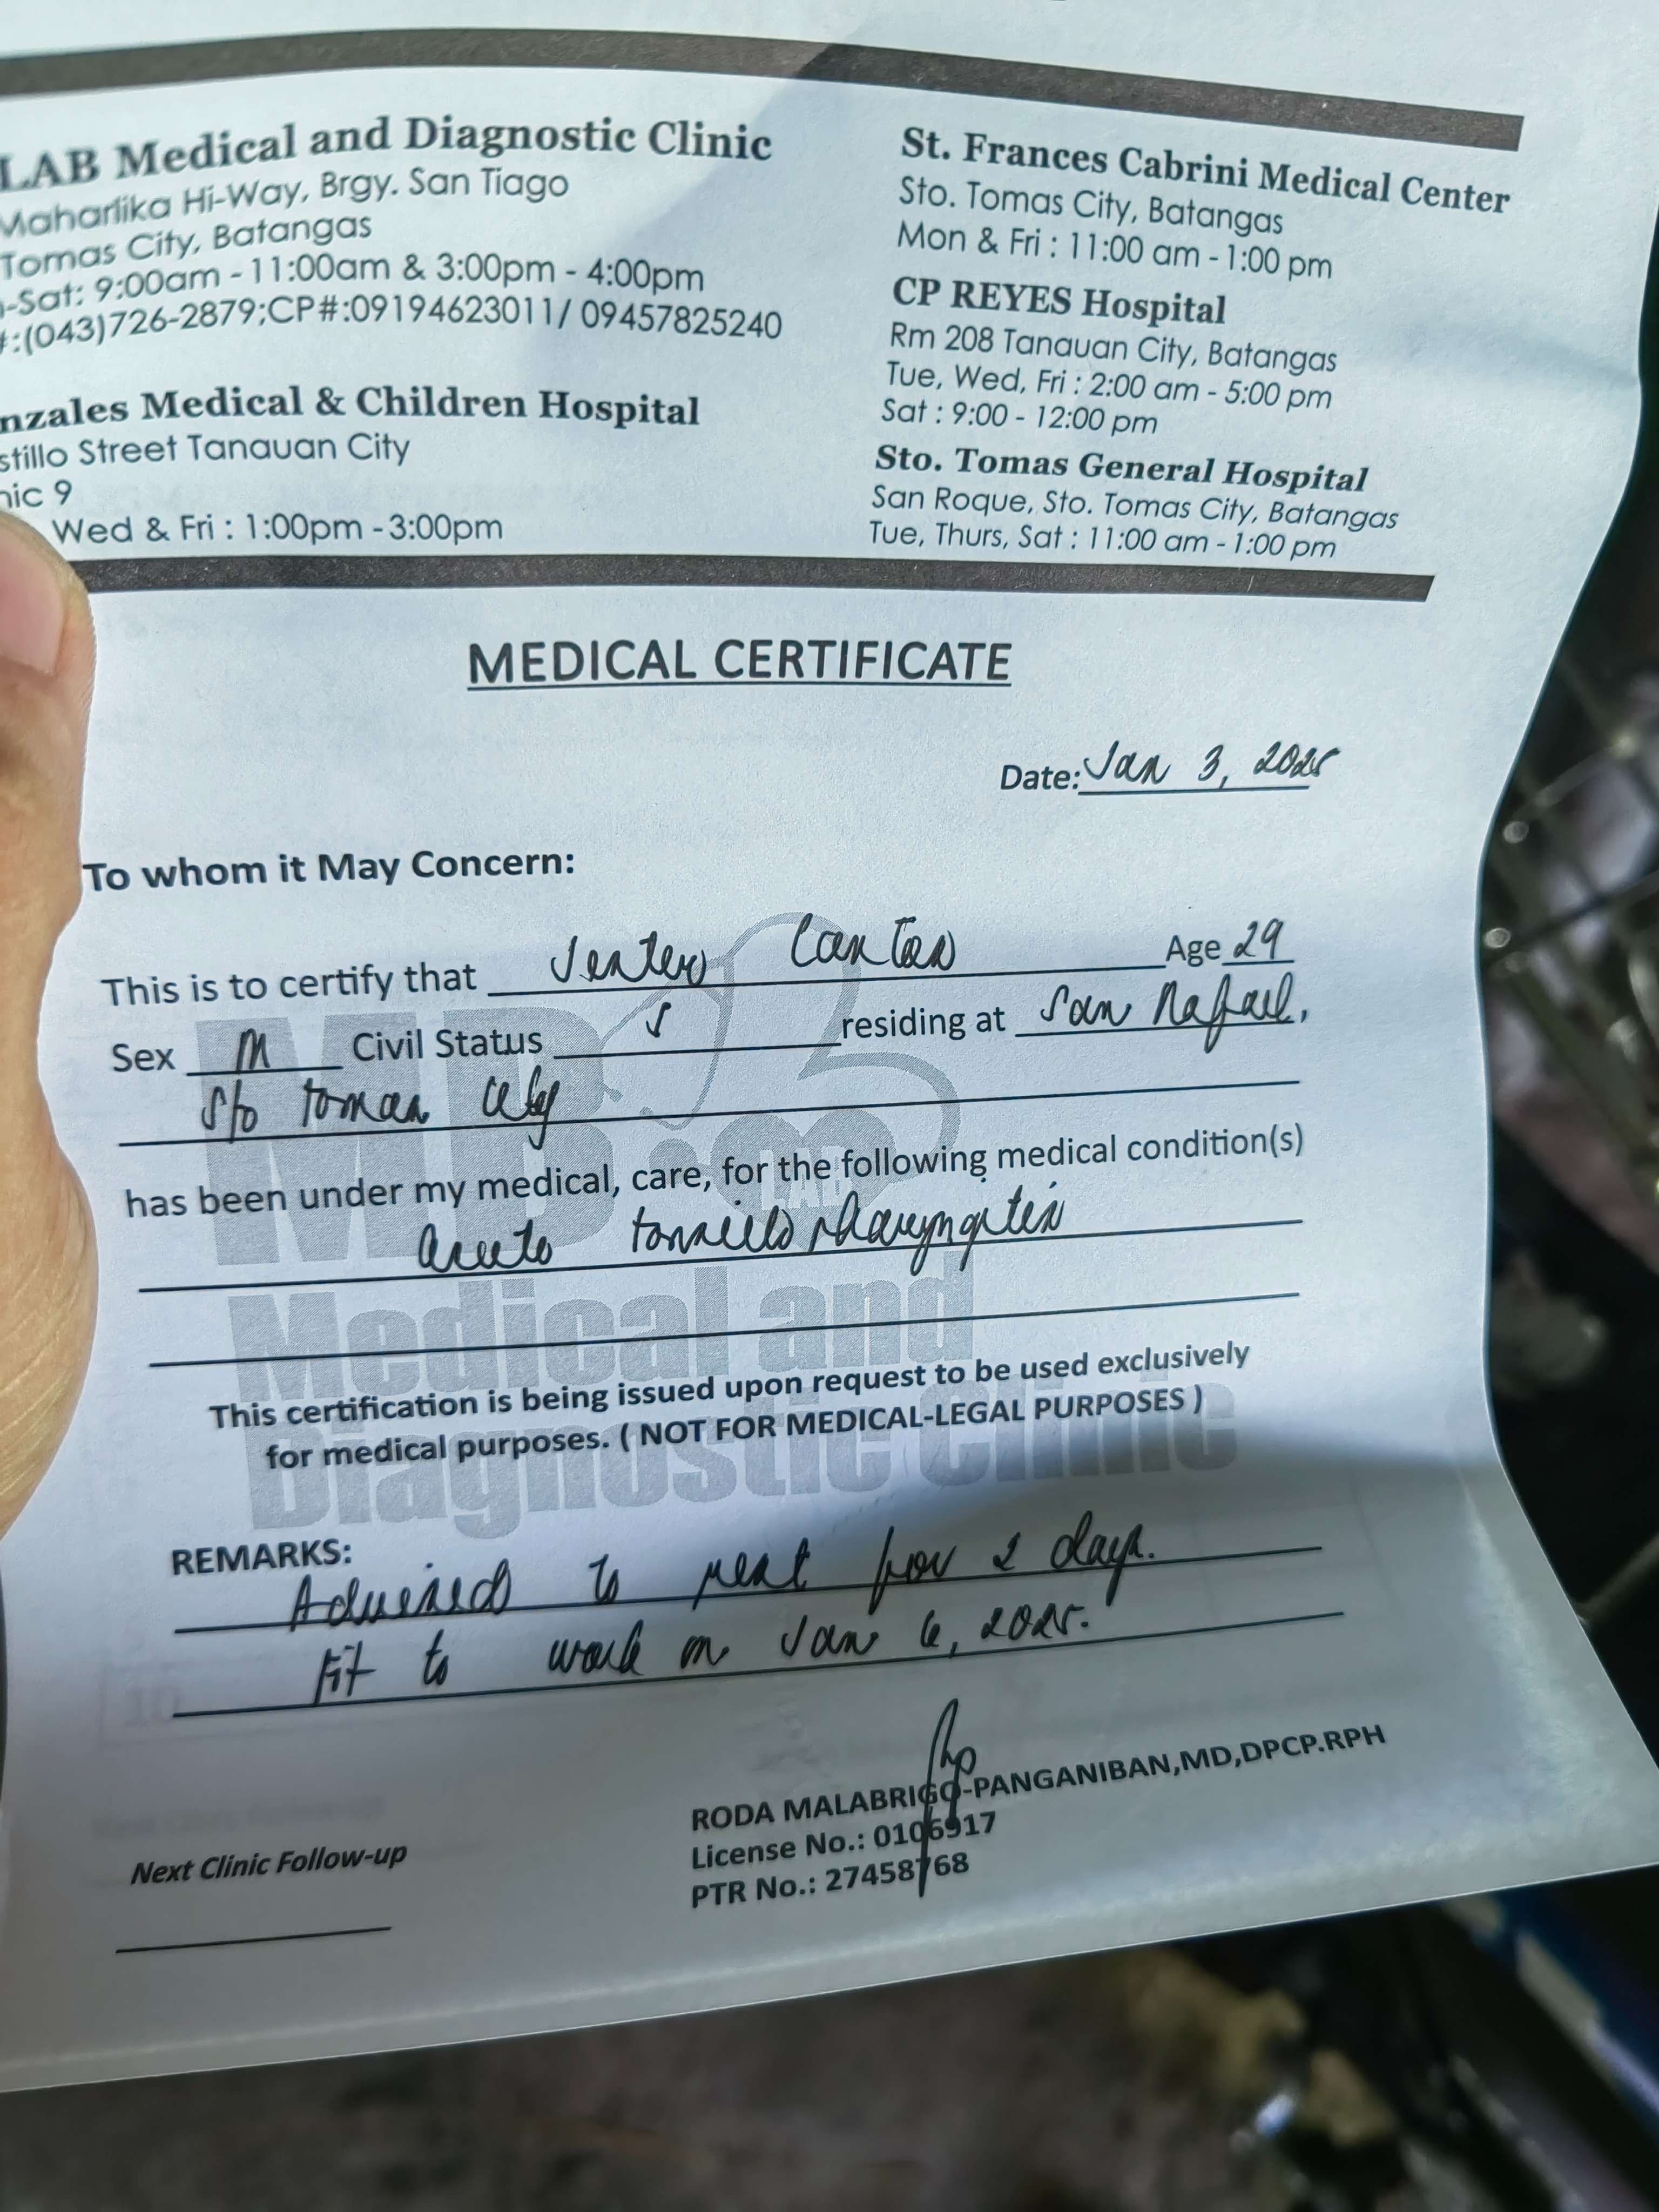 LAB Medical and Diagnostic Clinic
Maharlika Hi-Way, Brgy. San Tiago
Tomas City, Batangas
-Sat: 9:00am - 11:00am & 3:00pm - 4:00pm
#:(043)726-2879;CP#:09194623011/ 09457825240
nzales Medical & Children Hospital
stillo Street Tanauan City
nic 9
Wed & Fri : 1:00pm - 3:00pm
St. Frances Cabrini Medical Center
Sto. Tomas City, Batangas
Mon & Fri : 11:00 am - 1:00 pm
CP REYES Hospital
Rm 208 Tanauan City, Batangas
Tue, Wed, Fri : 2:00 am - 5:00 pm
Sat : 9:00 - 12:00 pm
Sto. Tomas General Hospital
San Roque, Sto. Tomas City, Batangas
Tue, Thurs, Sat : 11:00 am - 1:00 pm
MEDICAL CERTIFICATE
Date: Jan 3, 2025
To whom it May Concern:
This is to certify that Age 29
Sex M Civil Status S residing at San Rafael,
Sto Tomas City
has been under my medical, care, for the following medical condition(s)
Acute tonsillopharyngitis
MD LAB
Medical and
Diagnostic Clinic
This certification is being issued upon request to be used exclusively
for medical purposes. ( NOT FOR MEDICAL-LEGAL PURPOSES )
REMARKS:
Advised to rest for 2 days.
Fit to work on Jan 6, 2025.
RODA MALABRIGO-PANGANIBAN,MD,DPCP.RPH
License No.: 0106917
PTR No.: 27458768
Next Clinic Follow-up